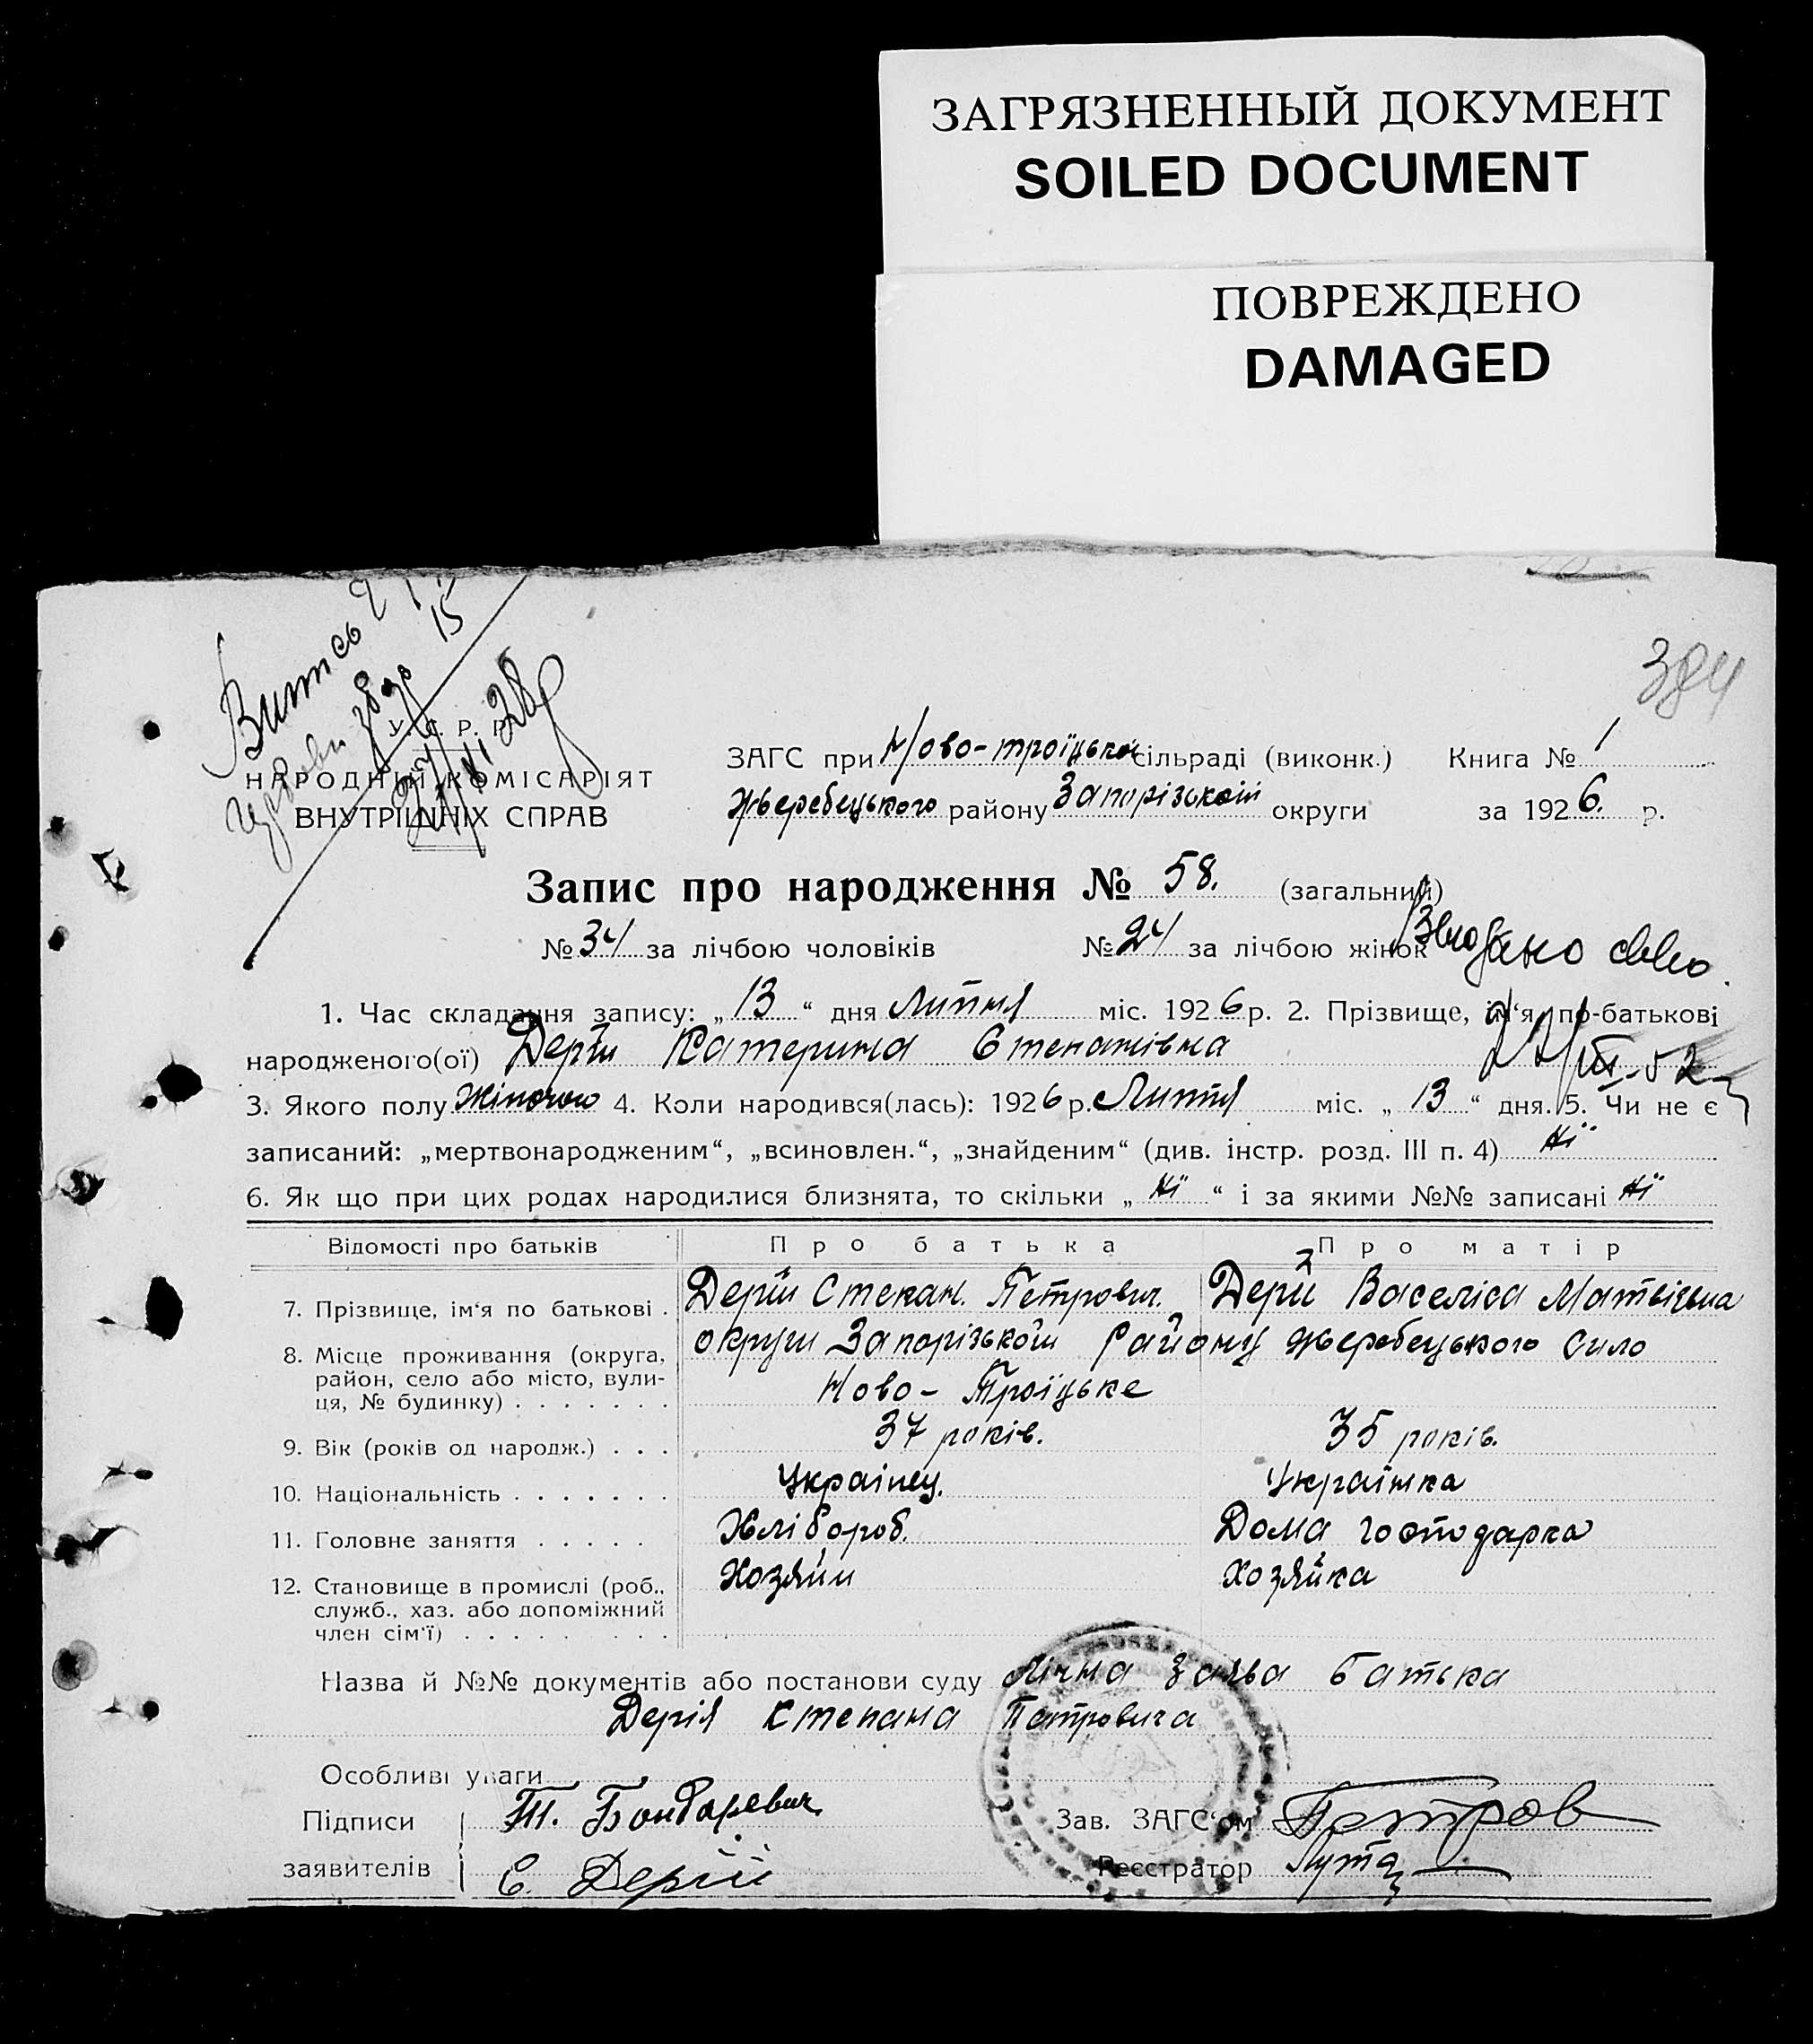 ЗАГРЯЗНЕННЫЙ ДОКУМЕНТ
SOILED DOCUMENT
ПОВРЕЖДЕНО
DAMAGED
384
У. С. Р. Р.
НАРОДНИЙ КОМІСАРІЯТ
ВНУТРІШНІХ СПРАВ
ЗАГС при Ново-троїцькой сільраді (виконк.) Книга № 1
Жеребецького району Запорізькой округи за 1926. р.
Запис про народження № 58. (загальний)
№ 34 за лічбою чоловіків № 24 за лічбою жінок
1. Час складання запису: „13“ дня Липня міс. 1926 р. 2. Прізвище, ім‘я по-батькові
народженого(ої) Дерій Катерина Степанівна
3. Якого полу Жіночого 4. Коли народився(лась): 1926 р. Липня міс. „13“ дня. 5. Чи не є
записаний: „мертвонародженим“, „всиновлен.“, „знайденим“ (див. інстр. розд. III п. 4) Ні
6. Як що при цих родах народилися близнята, то скільки „Ні“ і за якими №№ записані Ні
Відомості про батьків Про батька Про матір
7. Прізвище, ім‘я по батькові . Дерій Степан. Петрович. Дерій Васеліса Матвіівна
8. Місце проживання (округа, округи Запорізькой Району Жеребецького Сило
район, село або місто, вули-
ця, № будинку) . . . . . . . Ново-Троїцьке
9. Вік (років од народж.) . . . 37 років. 35 років.
10. Національність . . . . . . . Украінец. Українка
11. Головне заняття . . . . . Хлібороб. Дома господарка
12. Становище в промислі (роб., Хозяйн Хозяйка
служб., хаз. або допоміжний
член сім‘ї) . . . . . . . . .
Назва й №№ документів або постанови суду Лічна заява батька
Дерія Степана Петровича
Особливі уваги
Підписи Т. Бондаревич Зав. ЗАГС‘ом Петров
заявителів С. Дерій Реєстратор